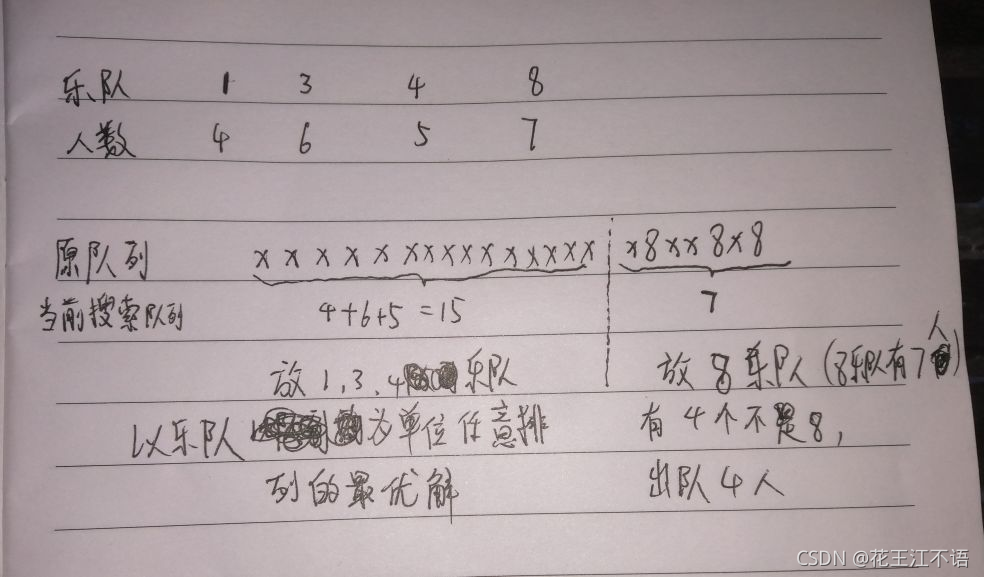 乐队 1 3 4 8
人数 4 6 5 7
原队列 x x x x x x x x x x x x x x x x 8 x x 8 x 8
当前搜索队列 4+6+5=15 7
放1,3,4乐队 放8乐队(8乐队有7人)
以乐队为单位任意排 有4个不是8,
列的最优解 出队4人
CSDN @花王江不语